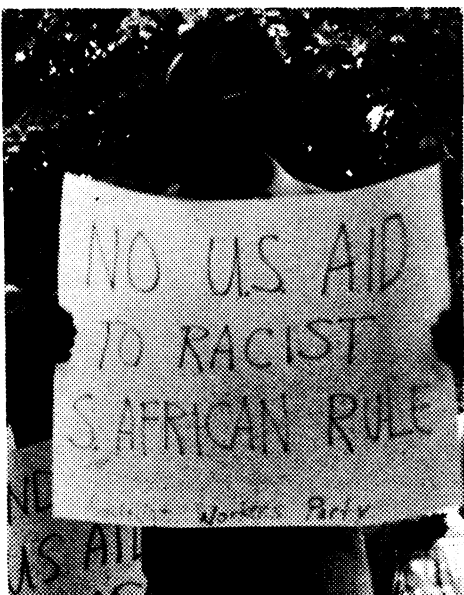 NO U.S. AID
TO RACIST
S. AFRICAN RULE
Workers Party
US AID